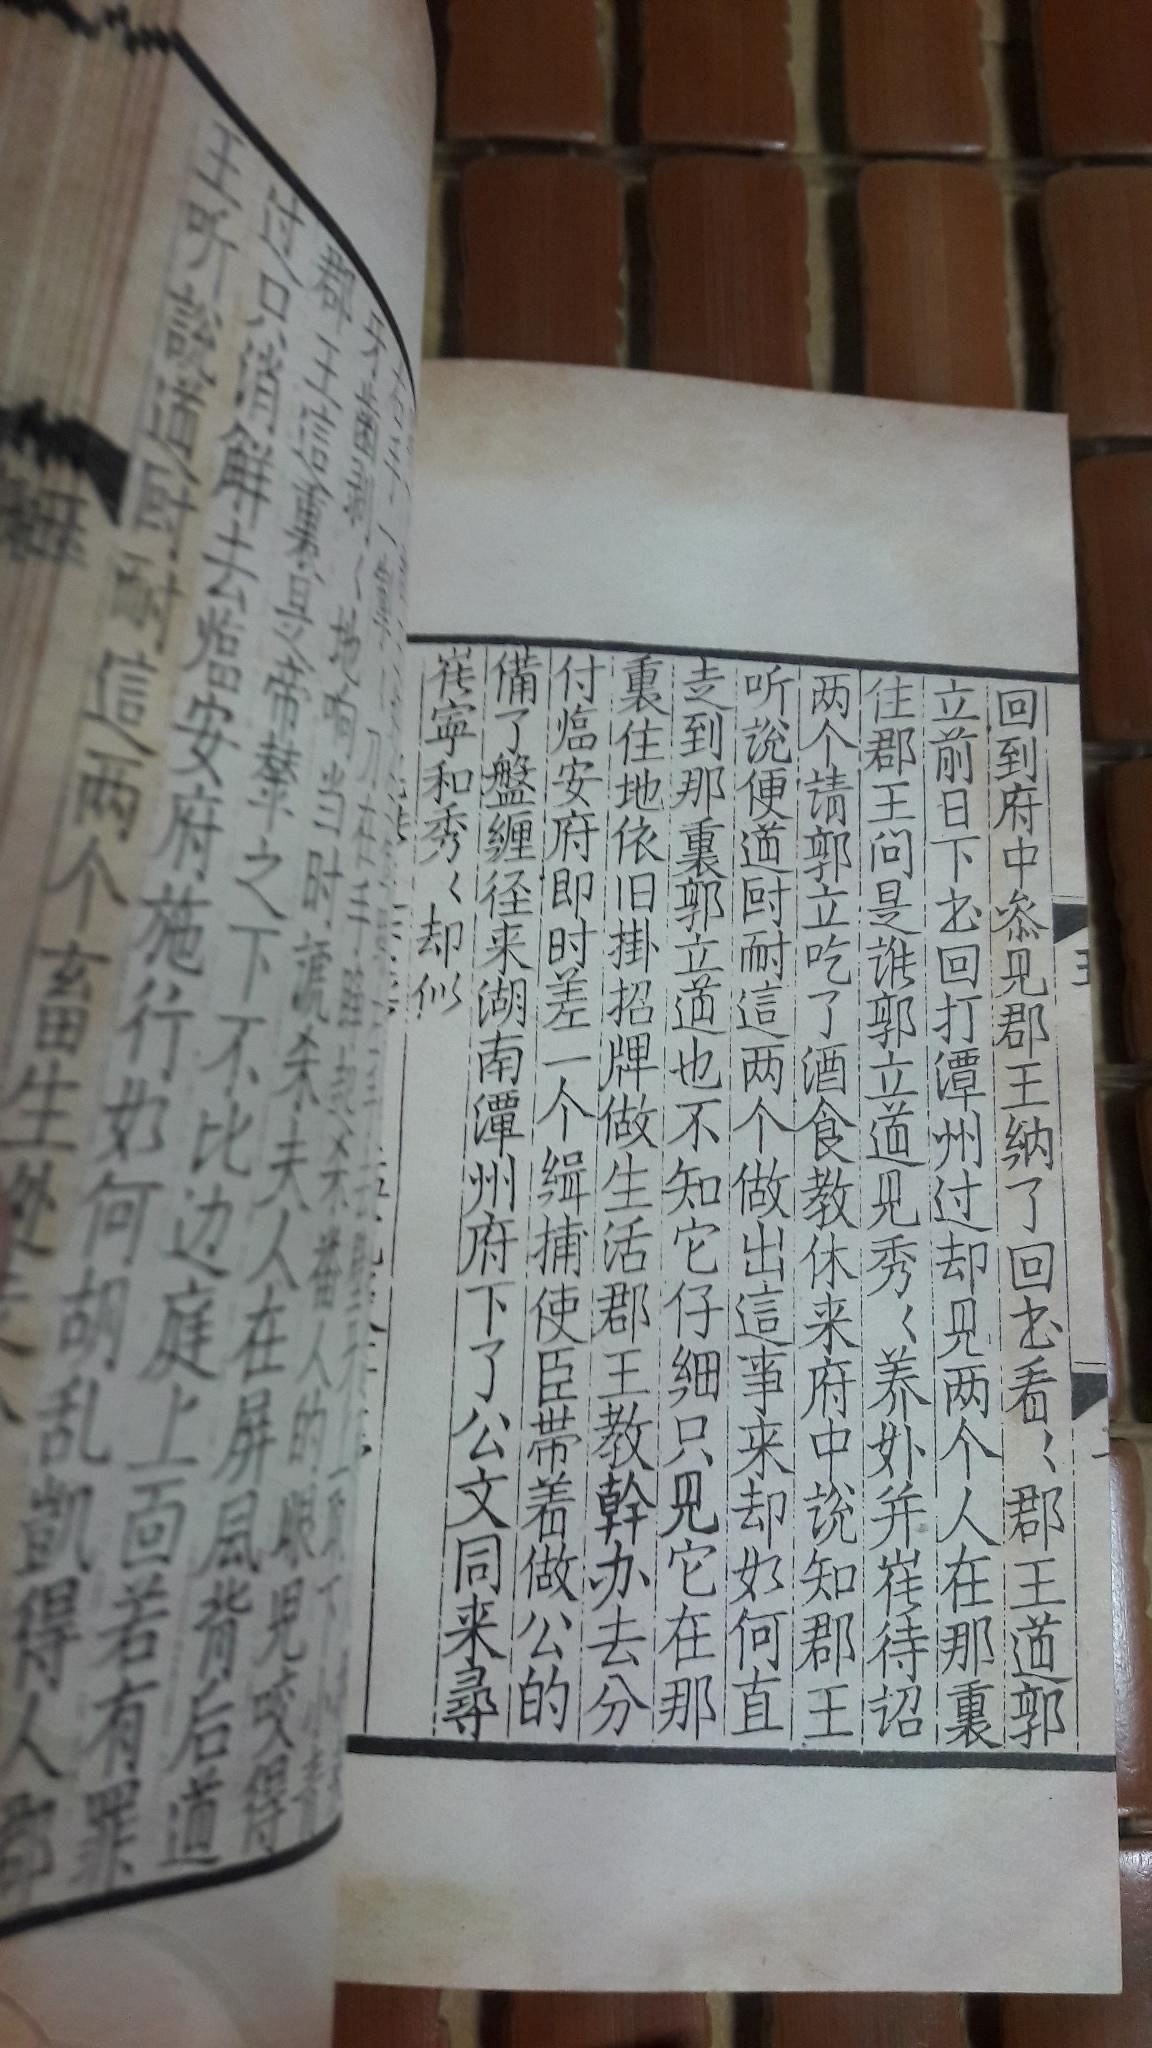 回到府中叅见郡王纳了回书看〻郡王道郭
立前日下书回打潭州过却见两个人在那裏
住郡王问是谁郭立道见秀〻养娘并崔待诏
两个请郭立吃了酒食教休来府中说知郡王
听说便道叵耐這两个做出這事来却如何直
走到那裏郭立道也不知它仔细只见它在那
裏住地依旧掛招牌做生活郡王教幹办去分
付临安府即时差一个缉捕使臣带着做公的
備了盤缠径来湖南潭州府下了公文同来尋
崔宁和秀〻却似
牙齒剥〻地响当时諕杀夫人在屏風背后道
郡王這裏是帝輦之下不比边庭上面若有罪
过只消解去临安府施行如何胡乱凱得人郡
王听說道叵耐這两个畜生